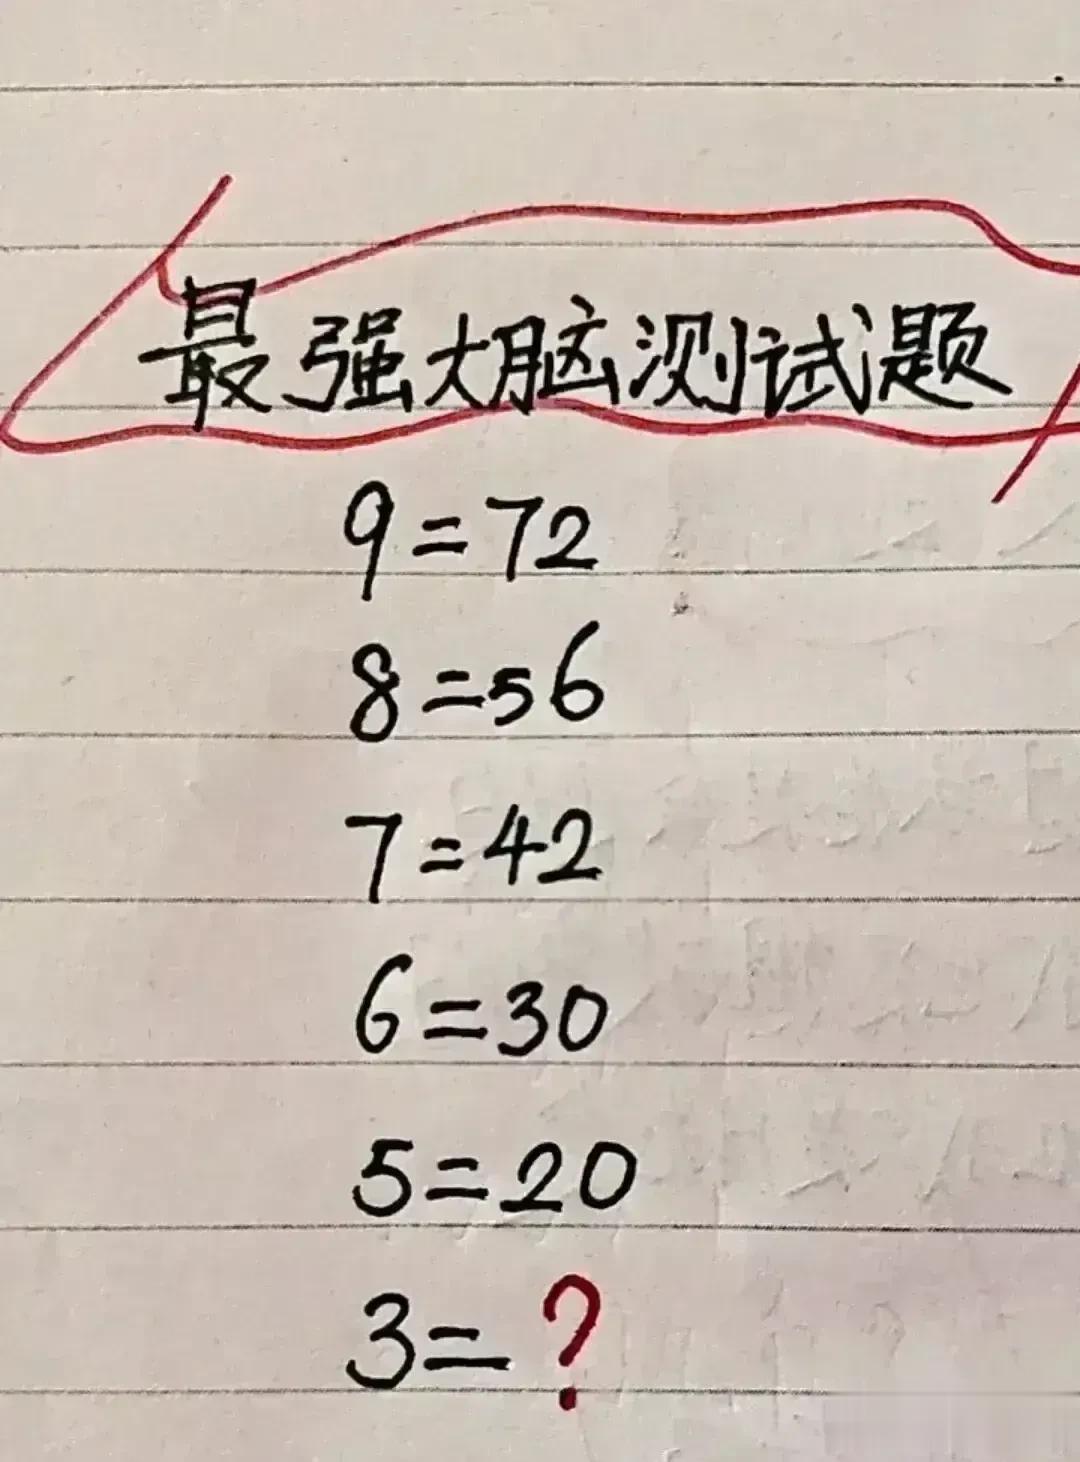 最强大脑测试题
9=72
8=56
7=42
6=30
5=20
3=?